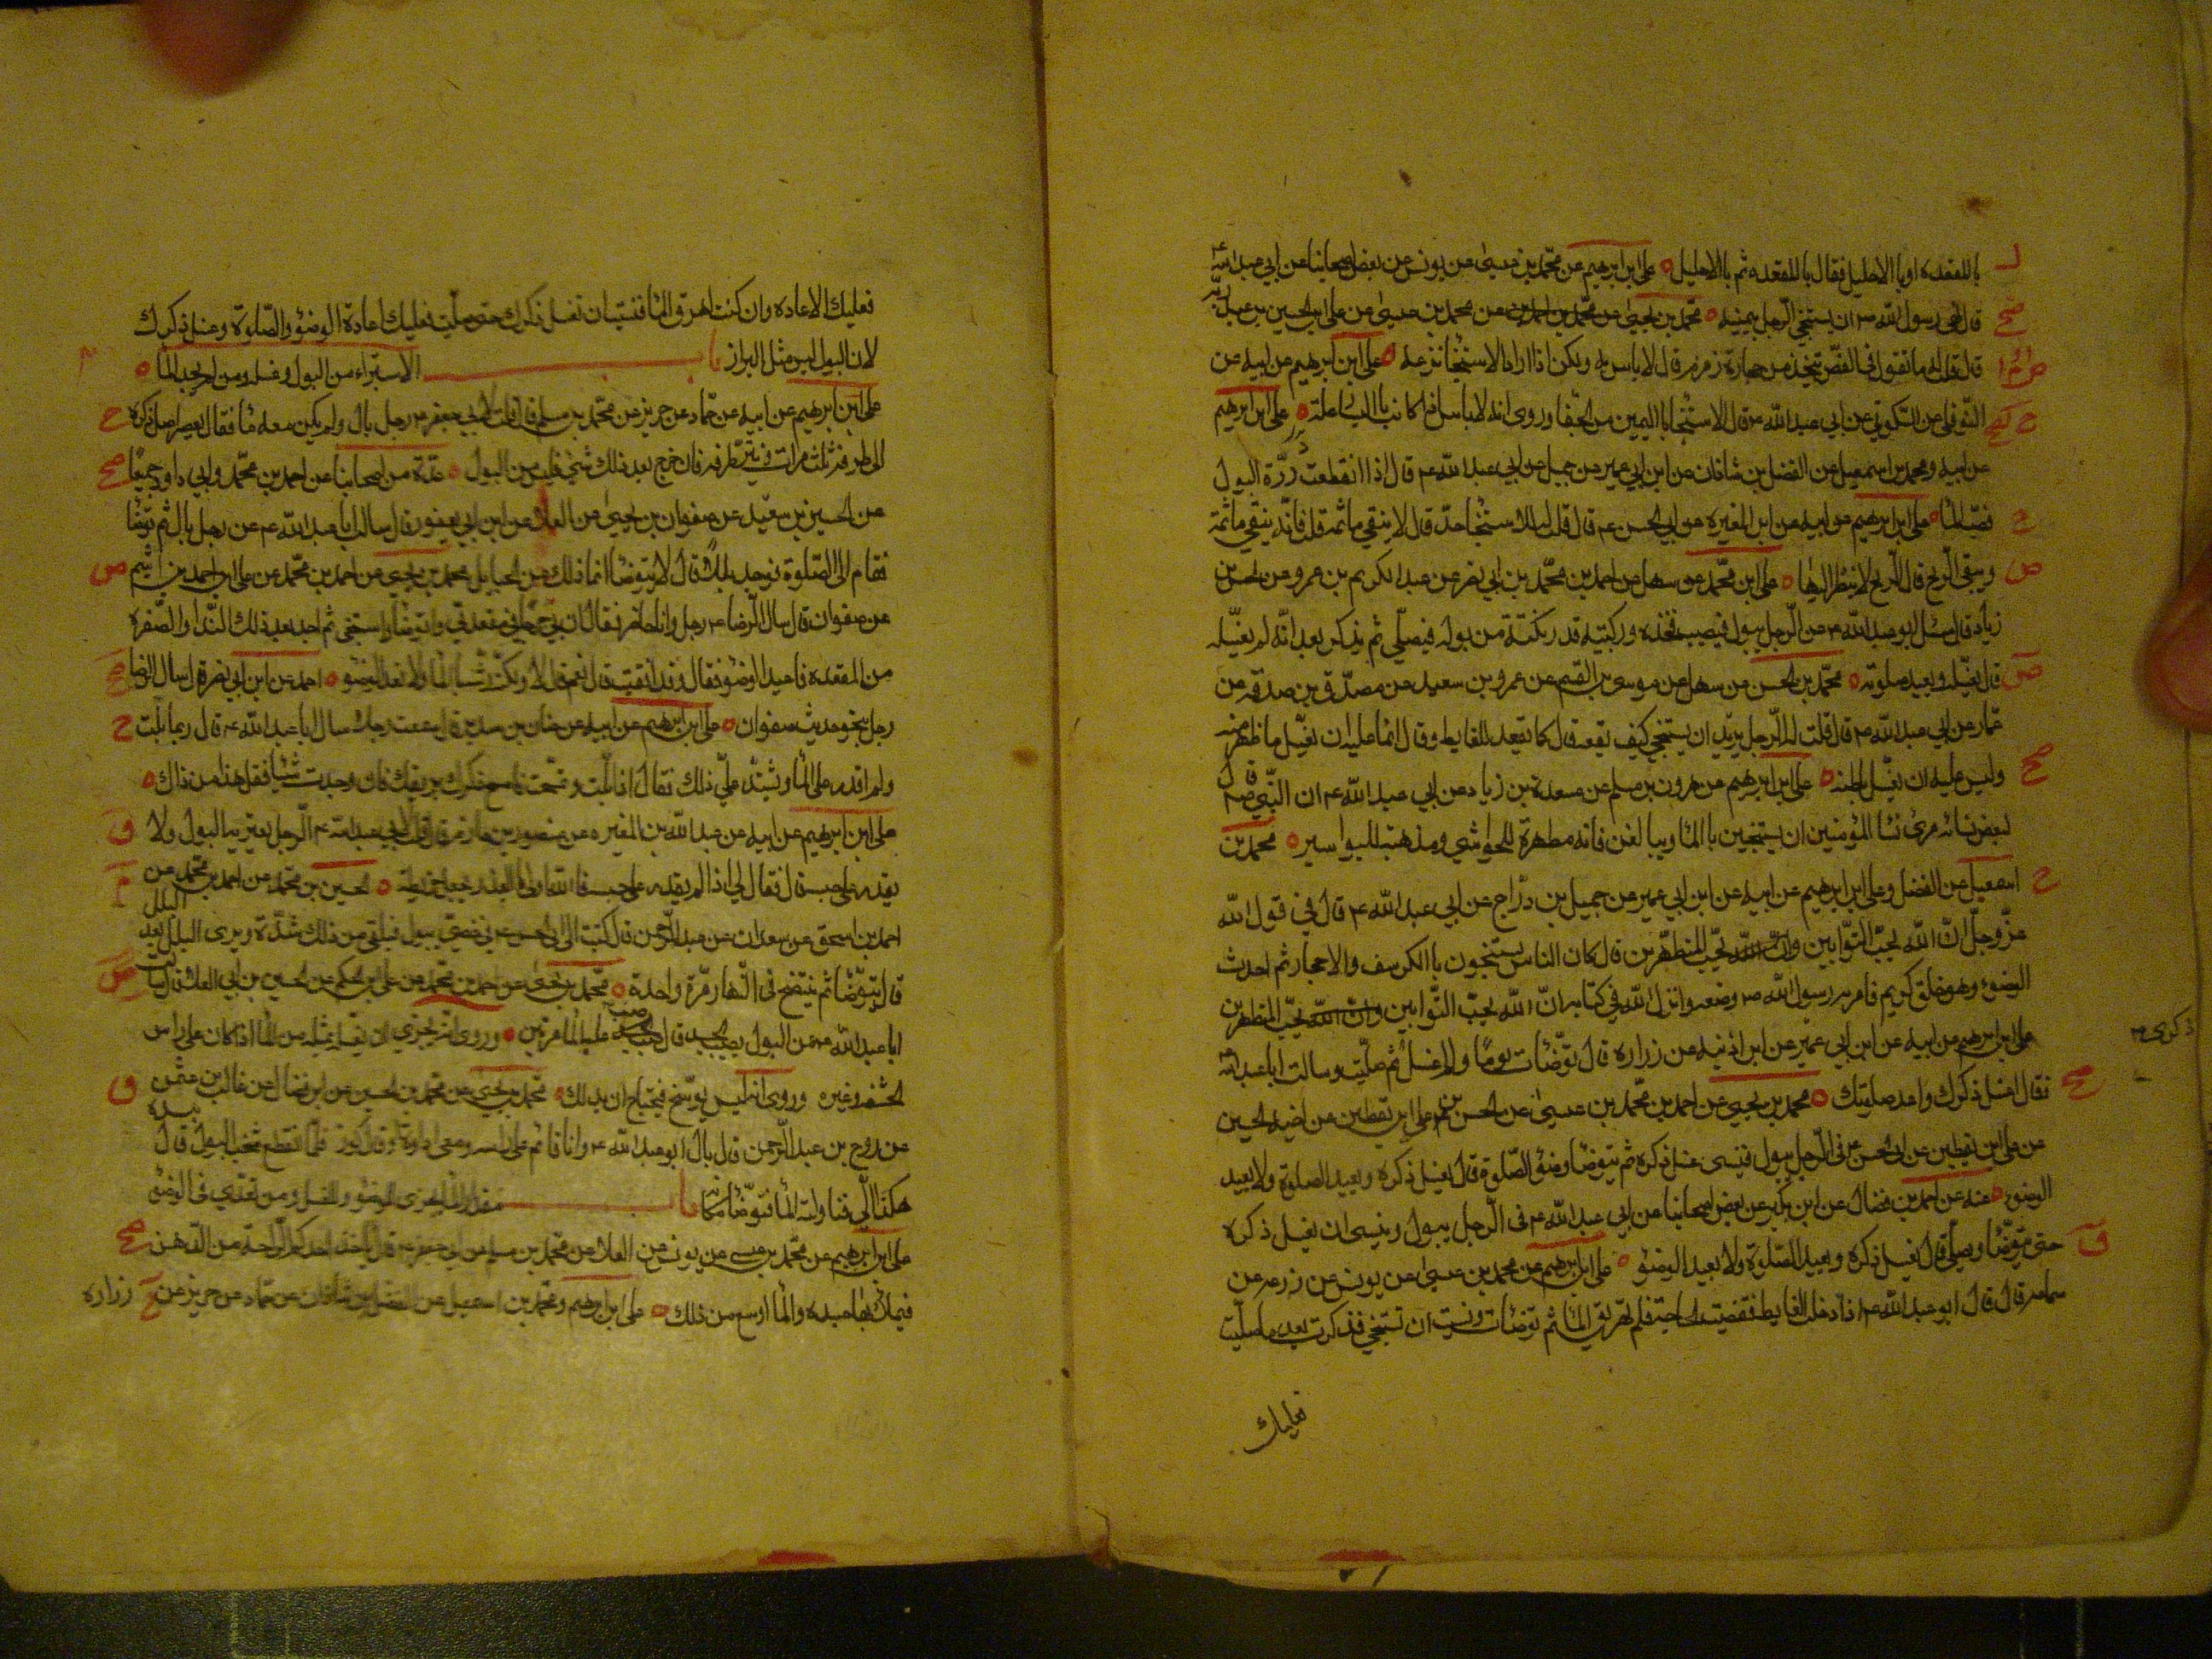 باللمقعده او باالاحليل فقال باللمقعده ثم باالاحليل علي ابن ابرهيم عن محمد بن عيسى عن يونس عن بعض اصحابنا عن ابي عبد الله ع
قال نهى رسول الله ص ان يستنجي الرجل بيمينه محمد بن يحيى عن محمد بن احمد عن محمد بن عيسى عن علي بن الحسين بن عبد ربه
قال قلت له ما تقول في الفص يتخذ من حجارة زمزم قال لا باس به ولكن اذا اراد الاستنجا نزعه علي ابن ابرهيم عن ابيه عن
النوفلي عن السكوني عن ابي عبد الله ع قال الاستنجا باليمين من الجفا وروى انه لا باس اذا كانت باليسار علة علي ابن ابرهيم
عن ابيه ومحمد بن اسمعيل عن الفضل بن شاذان عن ابن ابي عمير عن جميل عن ابي عبد الله ع قال اذا انقطعت درّة البول
فصب الما علي ابن ابرهيم عن ابيه عن ابن المغيره عن ابي الحسن ع قال قلت له للاستنجا حدّ قال لا ينقي ما ثمة قلت فانه ينقي ما ثمة
ويبقى الريح قال الريح لا ينظر اليها علي ابن محمد عن سهل عن احمد بن محمد بن ابي نصر عن عبد الكريم بن عمرو عن الحسن بن
زياد قال سئل ابو عبد الله ع عن الرجل يبول فيصيب فخذه وركبتيه قدر نكتة من بوله فيصلّي ثم يذكر بعد انه لم يغسله
قال يغسله ويعيد صلوته محمد بن الحسن عن سهل عن موسى بن القسم عن عمرو بن سعيد عن مصدّق بن صدقه عن
عمار عن ابي عبد الله ع قال قلت له الرجل يريد ان يستنجي كيف يقعد قال كما يقعد للغايط وقال انما عليه ان يغسل ما ظهر منه
وليس عليه ان يغسل باطنه علي ابن ابرهيم عن هرون بن مسلم عن مسعدة بن زياد عن ابي عبد الله ع ان النبي ص قال
لبعض نسائه مري نسا المؤمنين ان يستنجين باالما ويبالغن فانه مطهرة للحواشي ومذهبة للبواسير محمد بن
اسمعيل عن الفضل وعلي ابن ابرهيم عن ابيه عن ابن ابي عمير عن جميل بن درّاج عن ابي عبد الله ع قال في قول الله
عزّ وجلّ انّ الله يحبّ التوّابين وانّ الله يحبّ المتطهّرين قال كان الناس يستنجون باالكرسف والاحجار ثم احدث
الوضوء وهو خلق كريم فامر به رسول الله ص وصنعه وانزل الله في كتابه انّ الله يحبّ التوّابين وانّ الله يحبّ المتطهرين
علي ابن ابرهيم عن ابيه عن ابن ابي عمير عن ابن اذينه عن زراره قال توضّأت يومًا ولم اغسل ثم صلّيت وسالت ابا عبد الله ع
فقال اغسل ذكرك واعد صلوتك محمد بن يحيى عن احمد بن محمد بن عيسى عن الحسن بن علي ابن يقطين عن اخيه الحسين
عن علي ابن يقطين عن ابي الحسن ع في الرجل يبول فينسى غسل ذكره ثم يتوضا وضؤ الصلوة قال يغسل ذكره ويعيد الصلوة ولا يعيد
الوضوء عنه عن احمد بن فضال عن ابن بكير عن بعض اصحابنا عن ابي عبد الله ع في الرجل يبول وينسى ان يغسل ذكره
حتى يتوضّأ ويصلي قال يغسل ذكره ويعيد الصلوة ولا يعيد الوضوء علي ابن ابرهيم عن محمد بن عيسى عن يونس عن زرعه عن
سماعه قال قال ابو عبد الله ع اذا دخلت الغايط فقضيت الحاجة فلم تهرق الما ثم توضأت ونسيت ان تستنجي فذكرت بعد ما صلّيت
فعليك
فعليك الاعاده وان كنت اهرقت الما فنسيت ان تغسل ذكرك حتى صلّيت فعليك اعادة الوضؤ والصّلوة وغسل ذكرك
لان البول ليس مثل البراز باب الاستبراء من البول وغسله ومن لم يجد الما
علي ابن ابرهيم عن ابيه عن حماد عن حريز عن محمد بن مسلم قال قلت لابي جعفر ع رجل بال ولم يكن معه ما فقال يعصر اصل ذكره
الى طرفه ثلث مرات وينتر طرفه فان خرج بعد ذلك شئ فليس من البول عدّة من اصحابنا عن احمد بن محمد وابي داود جميعًا
عن الحسين بن سعيد عن صفوان بن يحيى عن العلا عن ابن ابي يعفور قال سالت ابا عبد الله ع عن رجل بال ثم توضّا
فقام الى الصّلوة فوجد بللاً قال لا يتوضّا انما ذلك من الحبايل محمد بن يحيى عن احمد بن محمد عن علي ابن احمد بن اشيم
عن صفوان قال سال الرضا ع رجل وانا حاضر فقال ان بي جرحًا في مقعدتي فاتوضّا واستنجي ثم اجد بعد ذلك الندا والصّفرة
من المقعده فاعيد الوضوء فقال وقد انقيت قال نعم قال لا ولكن رشّه بالما ولا تعد الوضؤ احمد عن ابن ابي نصر قال سال الرضا ع
رجل بنحو حديث صفوان علي ابن ابرهيم عن ابيه عن حنان بن سدير قال سمعت رجلا سال ابا عبد الله ع قال ربما بلت
ولم اقدر على الما ويشتدّ عليّ ذلك فقال اذا بلت وتمسّحت فامسح ذكرك بريقك فان وجدت شيئا فقل هذا من ذاك
علي ابن ابرهيم عن ابيه عن عبد الله بن المغيره عن منصور بن حازم قال قلت لابي عبد الله ع الرجل يعتريه البول ولا
يقدر على حبسه قال فقال لي اذا لم يقدر على حبسه فالله اولى بالعذر يجعل خريطة الحسين بن محمد عن احمد بن محمد عن
احمد بن اسحق عن سعدان عن عبد الرحمن قال كتبت الى ابي الحسن ع في خصي يبول فيلقى من ذلك شدّة ويرى البلل بعد البلل
قال يتوضّا ثم ينتضح في النّهار مرّة واحدة محمد بن يحيى عن احمد بن محمد عن علي بن الحكم عن الحسين بن ابي العلا قال سالت
ابا عبد الله ع عن البول يصيب الجسد قال صبّ عليه الما مرتين وروى انه يجزي ان يغسل بمثله من الما اذا كان على راس
الحشفه وغيره وروى انه ليس بوسخ فيحتاج ان يدلك محمد بن يحيى عن محمد بن الحسين عن ابن فضال عن غالب بن عثمن
عن روح بن عبد الرحمن قال بال ابو عبد الله ع وانا قائم على راسه ومعي اداوة او قال كوز فلمّا انقطع شخب البول قال بيده
هكذا اليّ فناولته الما فتوضّا مكانه باب مقدار الما الذي يجزي للوضؤ والغسل ومن تعدّى في الوضؤ
علي ابن ابرهيم عن محمد بن عيسى عن يونس عن العلا عن محمد بن مسلم عن ابي جعفر ع قال ياخذ احدكم الرّاحة من الدّهن
فيملأ بها جسده والما اوسع من ذلك علي ابن ابرهيم ومحمد بن اسمعيل عن الفضل بن شاذان عن حماد عن حريز عن زراره